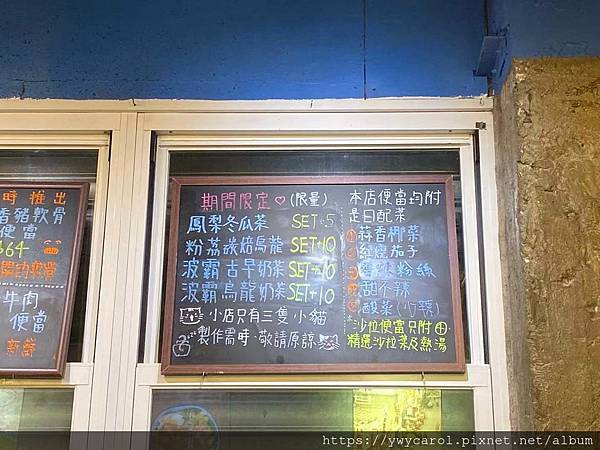 時推出
香豬軟骨
便當
364
牛肉
便當
期間限定♡(限量)
鳳梨冬瓜茶 SET+5
粉荔碳焙烏龍 SET+10
波霸古早奶茶 SET+10
波霸烏龍奶茶 SET+10
小店只有三隻小貓
"製作需時、敬請原諒"
本店便當均附
是日配菜
①蒜香椰菜
②紅燒茄子
粉絲
甜不辣
酸菜
"沙拉便當只附田
精選沙拉菜及熱湯
https://ywycarol.pixnet.net/album